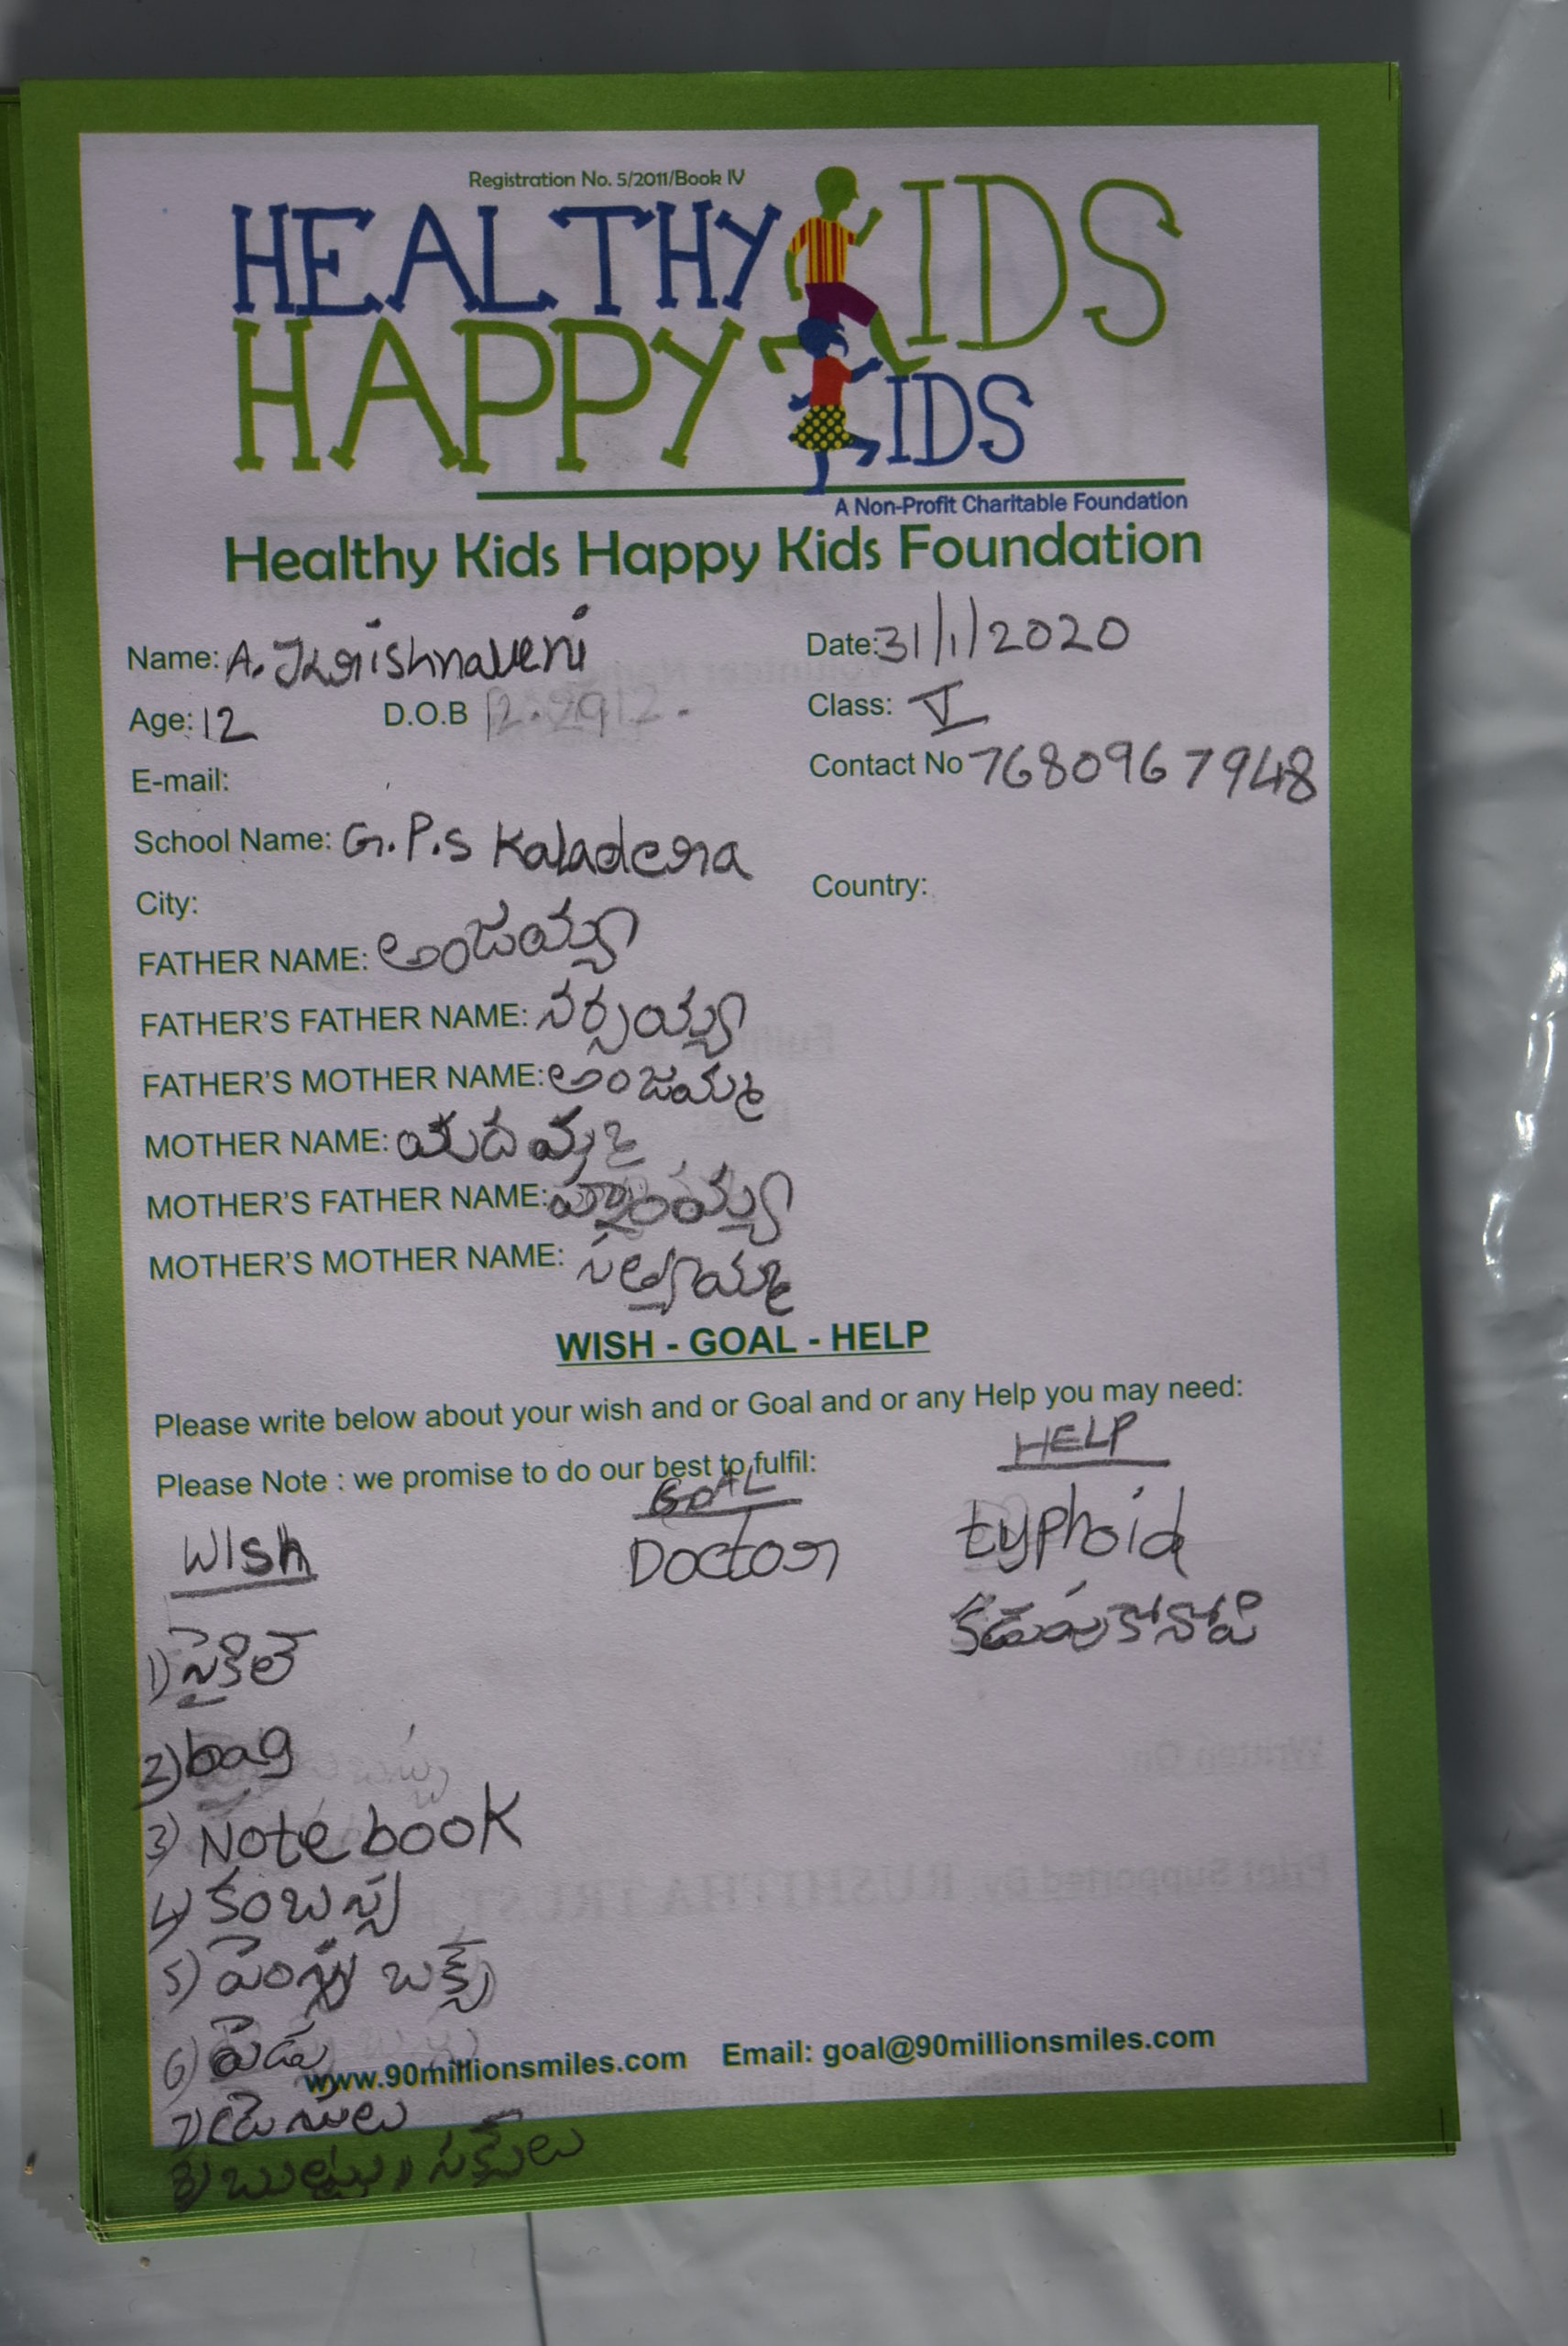 Registration No. 5/2011/Book IV
HEALTHY KIDS
HAPPY KIDS
A Non-Profit Charitable Foundation
Healthy Kids Happy Kids Foundation
Name: A. Krishnaveni Date: 31/1/2020
Age: 12 D.O.B Class: V
E-mail: Contact No 7680967948
School Name: G.P.S Kaladera
City: Country:
FATHER NAME: అంజయ్య
FATHER'S FATHER NAME: నర్సయ్య
FATHER'S MOTHER NAME: అంజమ్మ
MOTHER NAME: యదమ్మ
MOTHER'S FATHER NAME:
MOTHER'S MOTHER NAME: సత్తమ్మ
WISH - GOAL - HELP
Please write below about your wish and or Goal and or any Help you may need:
Please Note : we promise to do our best to fulfil:
Wish GOAL HELP
Doctor typhoid
1) సైకిల్ కడుపుకోనోపి
2) bag
3) Note book
4) కంబస్స
5) బక్స్
6)
www.90millionsmiles.com Email: goal@90millionsmiles.com
7)
8)